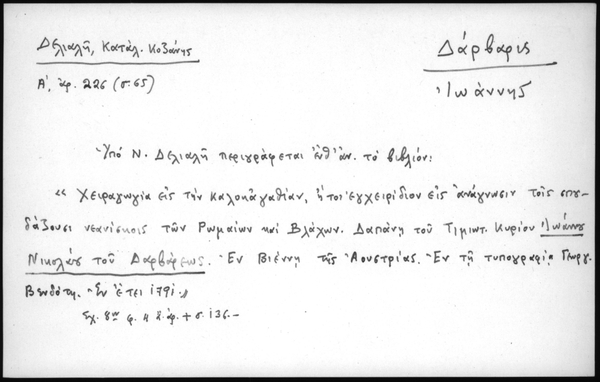 Δελιαλῆ, Κατάλ. Κοζάνης
Δάρβαρις
Α', ἀρ. 226 (σ. 65)
Ἰωάννης
Ὑπό Ν. Δελιαλῆ περιγράφεται ἐνθ' ἀν. τό βιβλίον:
« Χειραγωγία εἰς τήν καλοκἀγαθίαν, ἤτοι ἐγχειρίδιον εἰς ἀνάγνωσιν τοῖς σπου-
δάζουσι νεανίσκοις τῶν Ρωμαίων καί Βλάχων. Δαπάνῃ τοῦ Τιμιωτ. Κυρίου Ἰωάννου
Νικολάου τοῦ Δαρβάρεως. Ἐν Βιέννῃ τῆς Ἀουστρίας. Ἐν τῇ τυπογραφίᾳ Γεωργ.
Βενδότη. Ἐν ἔτει 1791 »
Σχ. 8ον φ. 4 + σ. 136.-